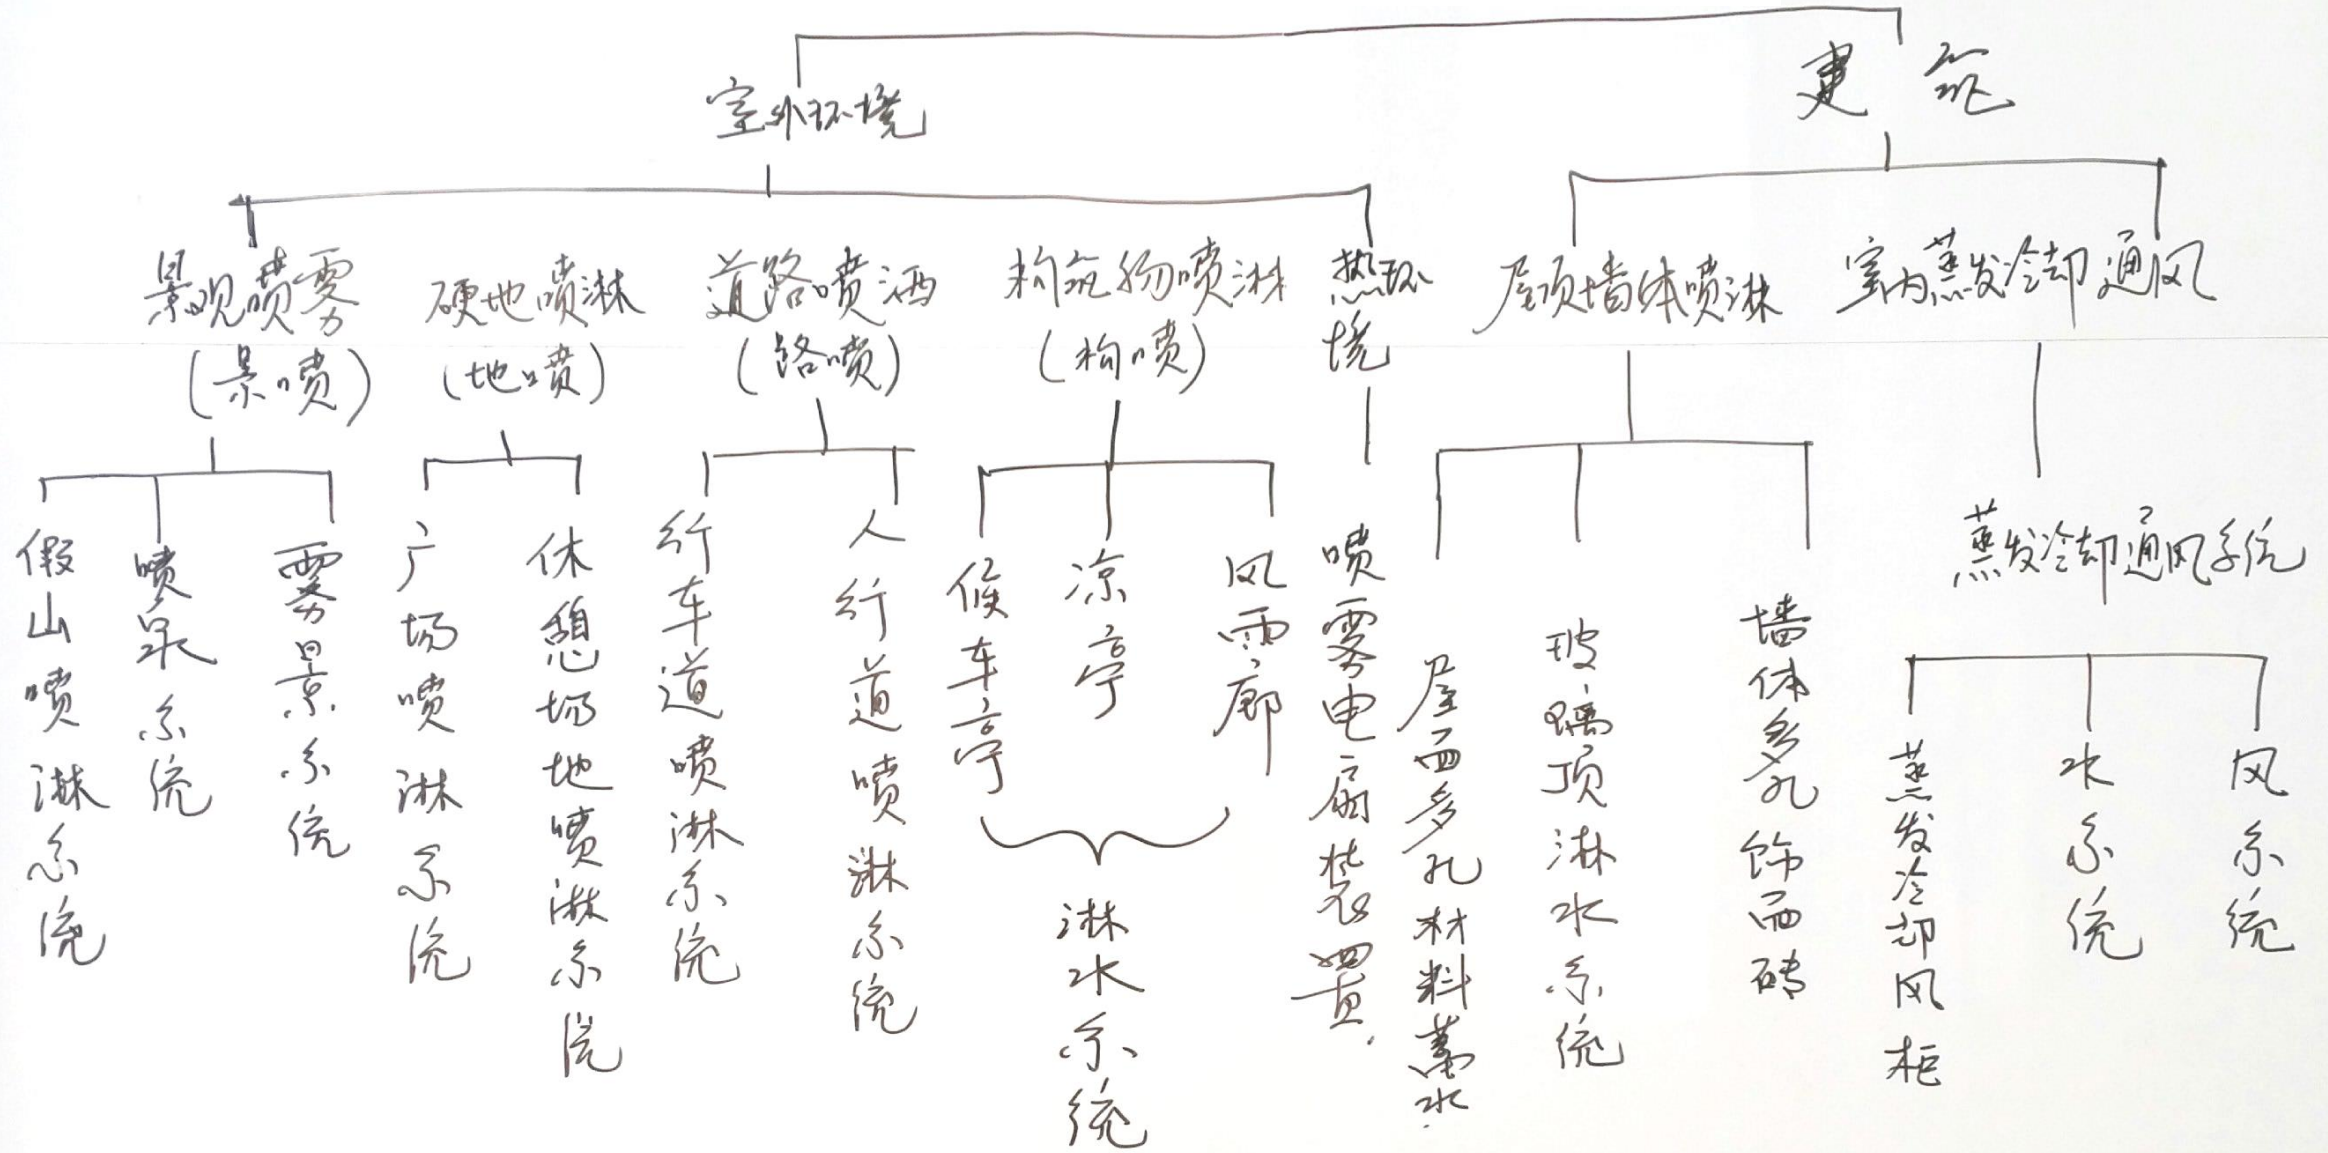 室外环境
建筑
景观喷雾
(景喷)
硬地喷淋
(地喷)
道路喷洒
(路喷)
构筑物喷淋
(构喷)
热环
境
屋顶墙体喷淋
室内蒸发冷却通风
假山喷淋系统
喷泉系统
雾景系统
广场喷淋系统
休憩场地喷淋系统
行车道喷淋系统
人行道喷淋系统
候车亭
凉亭
风雨廊
淋水系统
喷雾电扇装置.
屋面多孔材料蓄水.
玻璃顶淋水系统
墙体多孔饰面砖
蒸发冷却通风系统
蒸发冷却风柜
水系统
风系统